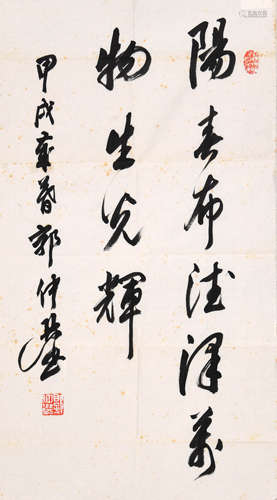 陽春布德泽萬
物生光輝
甲戌秦春郭仲選